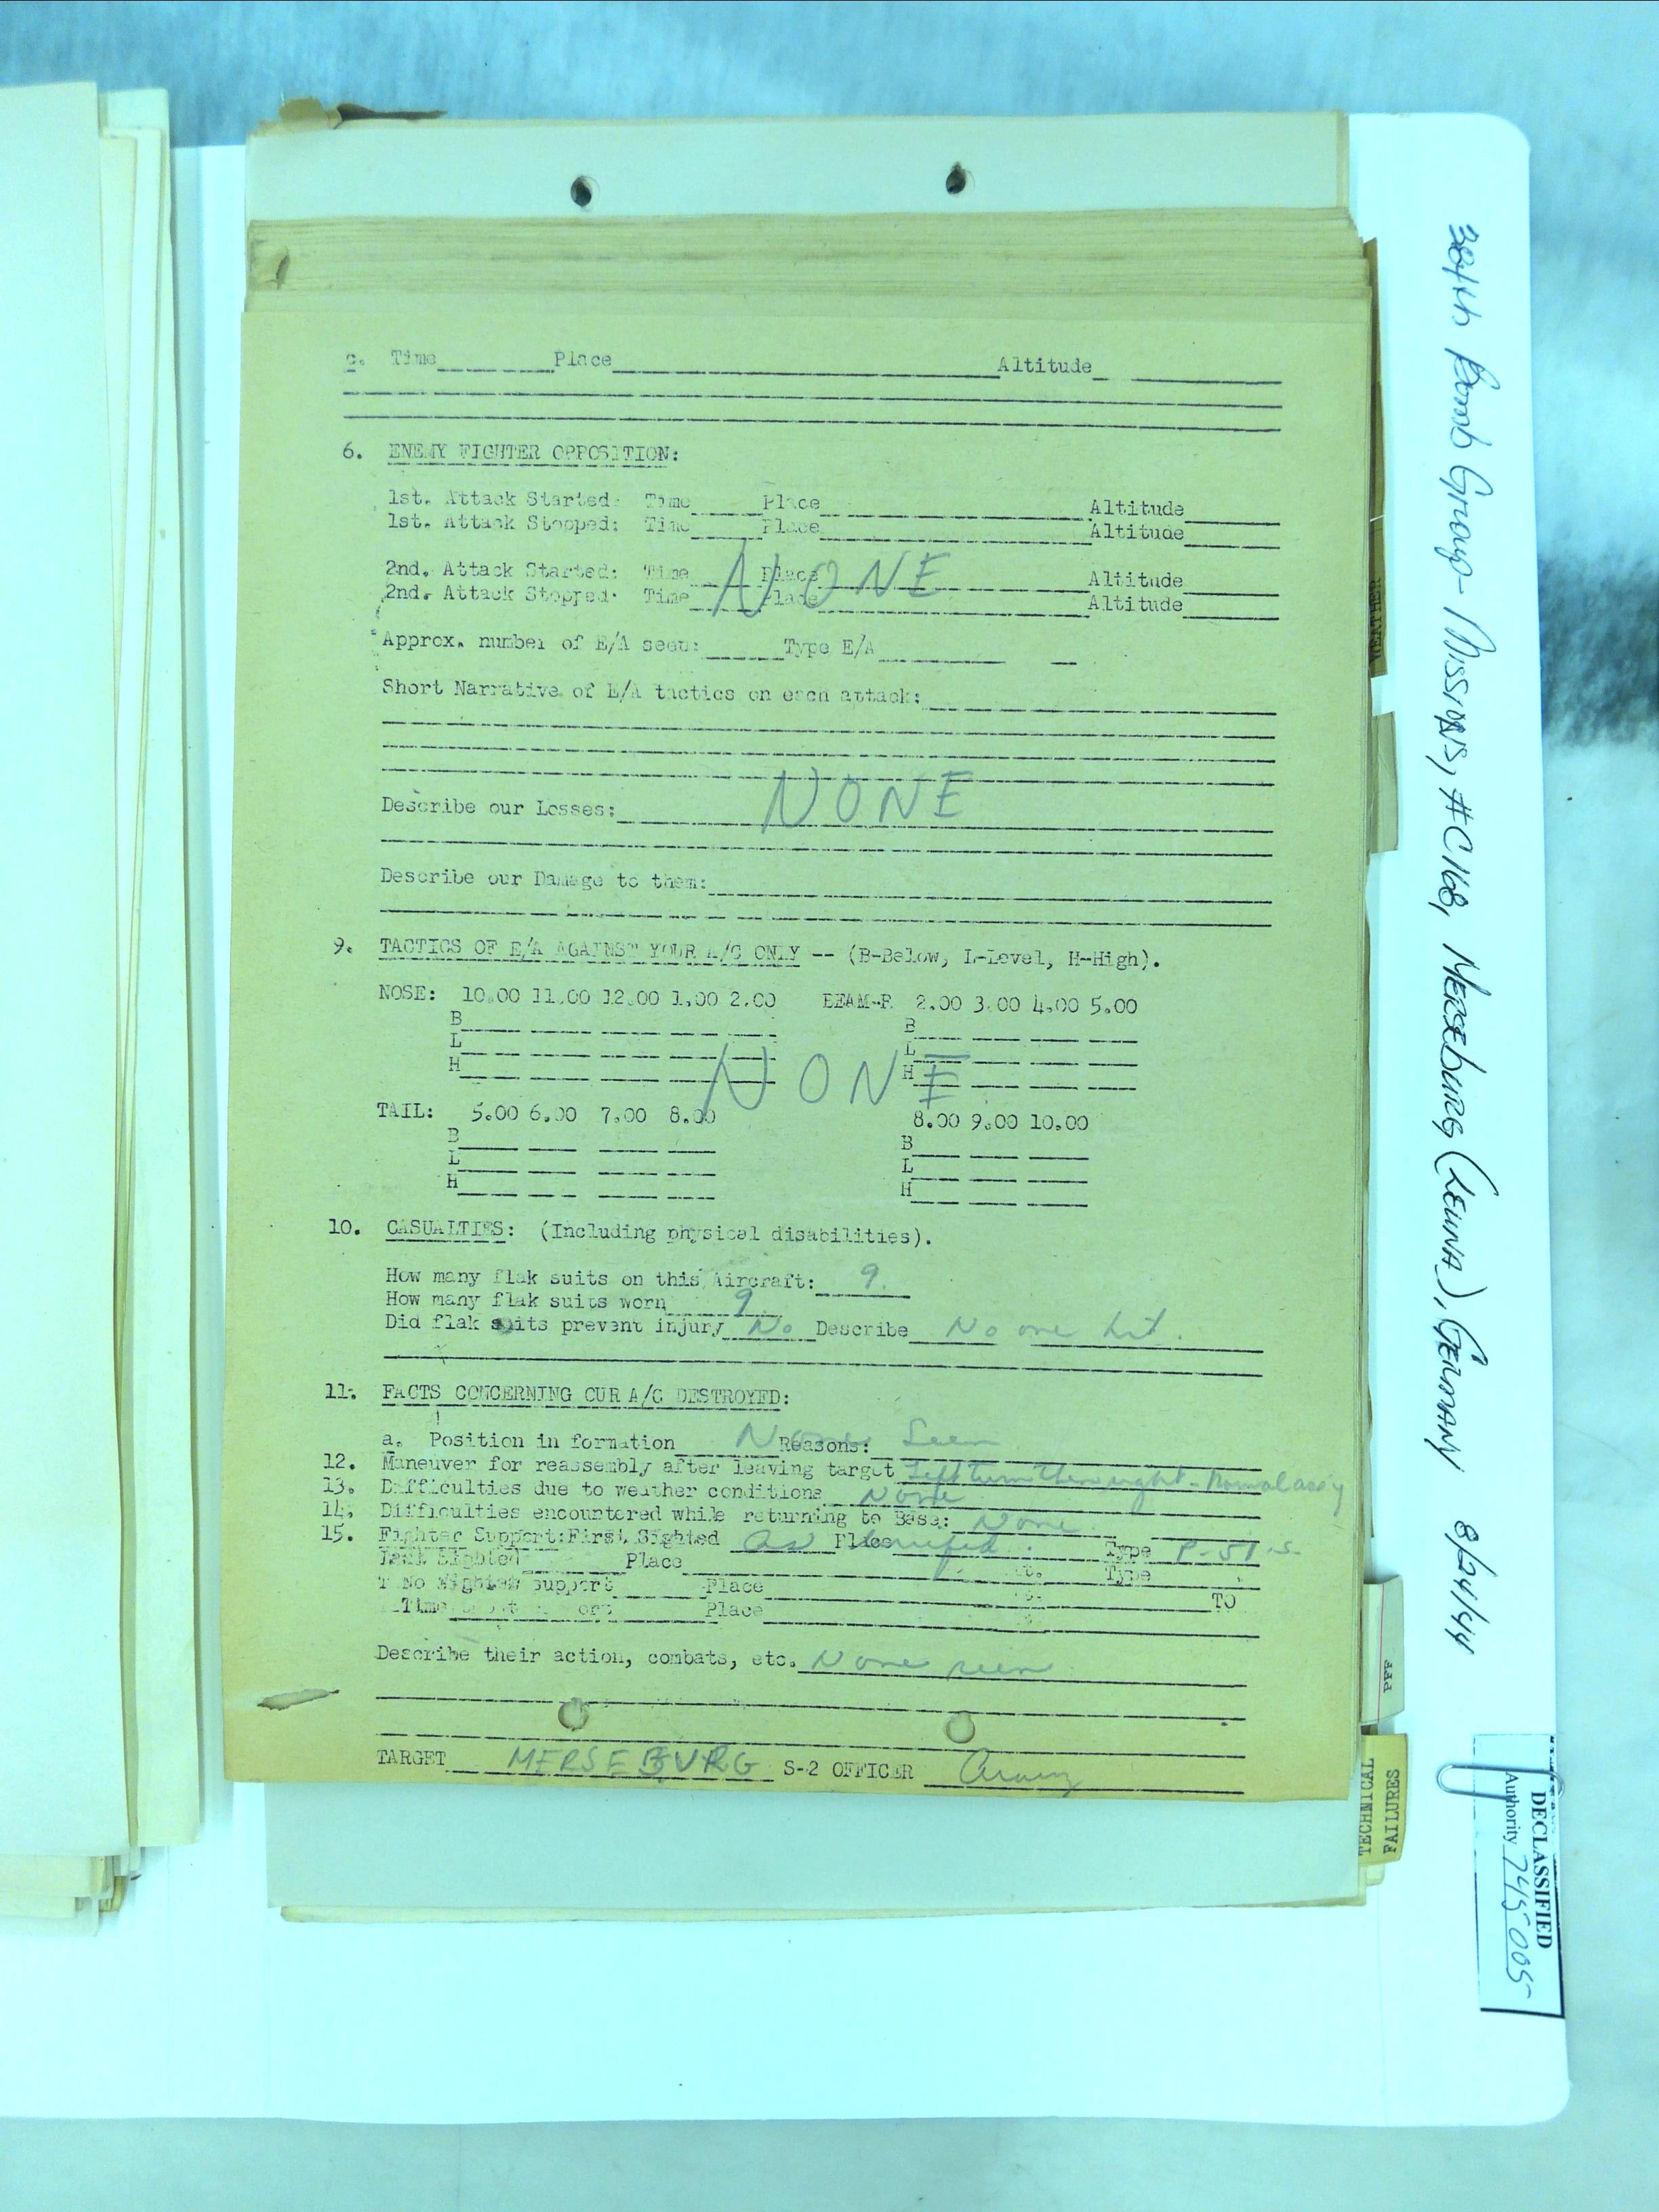 c. Time Place Altitude
6. ENEMY FIGHTER OPPOSITION:
1st. Attack Started: Time Place Altitude
1st. Attack Stopped: Time Place Altitude
2nd. Attack Started: Time Place Altitude
NONE
2nd. Attack Stopped: Time Place Altitude
Approx. number of E/A seen: Type E/A
Short Narrative of E/A tactics on each attack:
Describe our Losses: NONE
Describe our Damage to them:
9. TACTICS OF E/A AGAINST YOUR A/C ONLY -- (B-Below, L-Level, H-High).
NOSE: 10.00 11.00 12.00 1.00 2.00 BEAM-R 2.00 3.00 4.00 5.00
B B
L L
H H
NONE
TAIL: 5.00 6.00 7.00 8.00 8.00 9.00 10.00
B B
L L
H H
10. CASUALTIES: (Including physical disabilities).
How many flak suits on this Aircraft: 9.
How many flak suits worn 9
Did flak suits prevent injury No Describe No one hit.
11. FACTS CONCERNING OUR A/C DESTROYED:
a. Position in formation None Reasons: Seen
12. Maneuver for reassembly after leaving target Left turn then right - Normal
13. Difficulties due to weather conditions None
14. Difficulties encountered while returning to Base: None
15. Fighter Support: First Sighted As Place briefed. Type P-51's
Last Sighted Place Type
No Fighter Support Place TO
Time Place
Describe their action, combats, etc. None seen
TARGET MERSEBURG S-2 OFFICER
WEATHER
PFF
TECHNICAL
FAILURES
384th Bomb Group - Missions, #C168, Merseburg (Leuna), Germany 8/24/44
DECLASSIFIED
Authority 745005